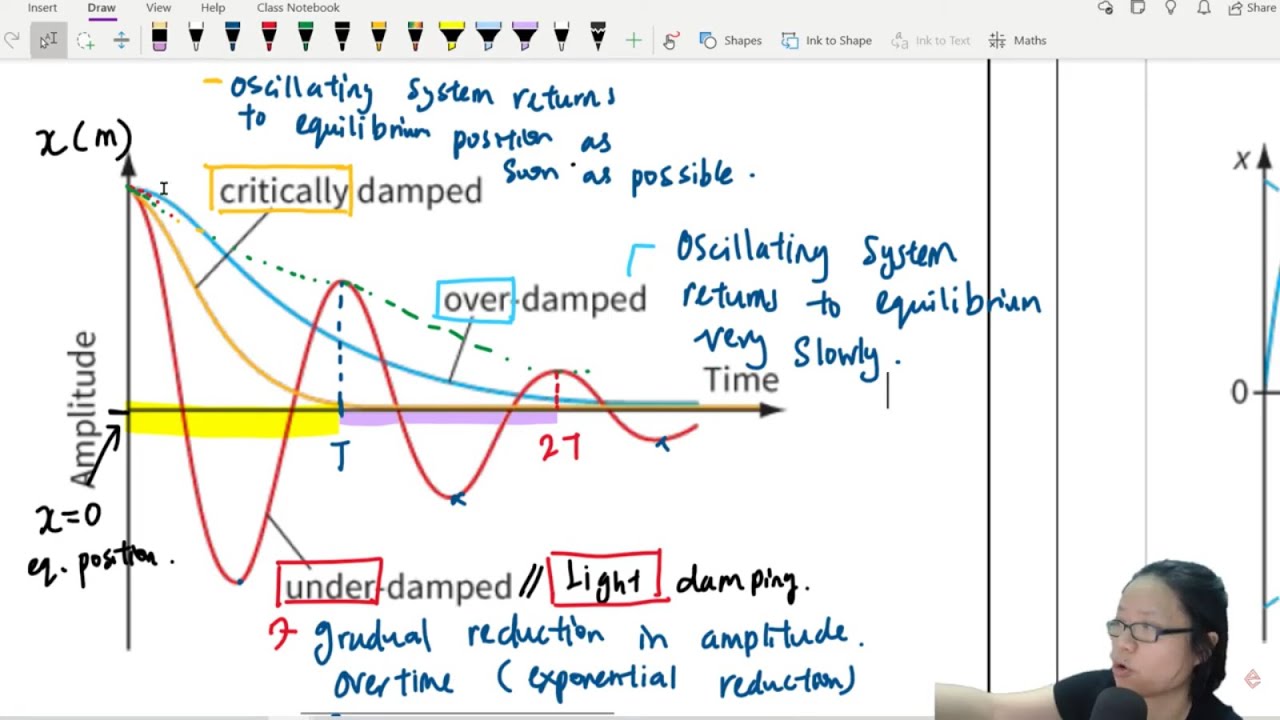 Insert Draw View Help Class Notebook Share
Shapes Ink to Shape Ink to Text Maths
- Oscillating system returns
to equilibrium position as
soon as possible.
x(m)
critically damped
over-damped
Oscillating system
returns to equilibrium
very slowly.
Time
Amplitude
T
2T
x=0
eq. position.
under-damped // Light damping.
gradual reduction in amplitude.
overtime (exponential reduction)
x
0